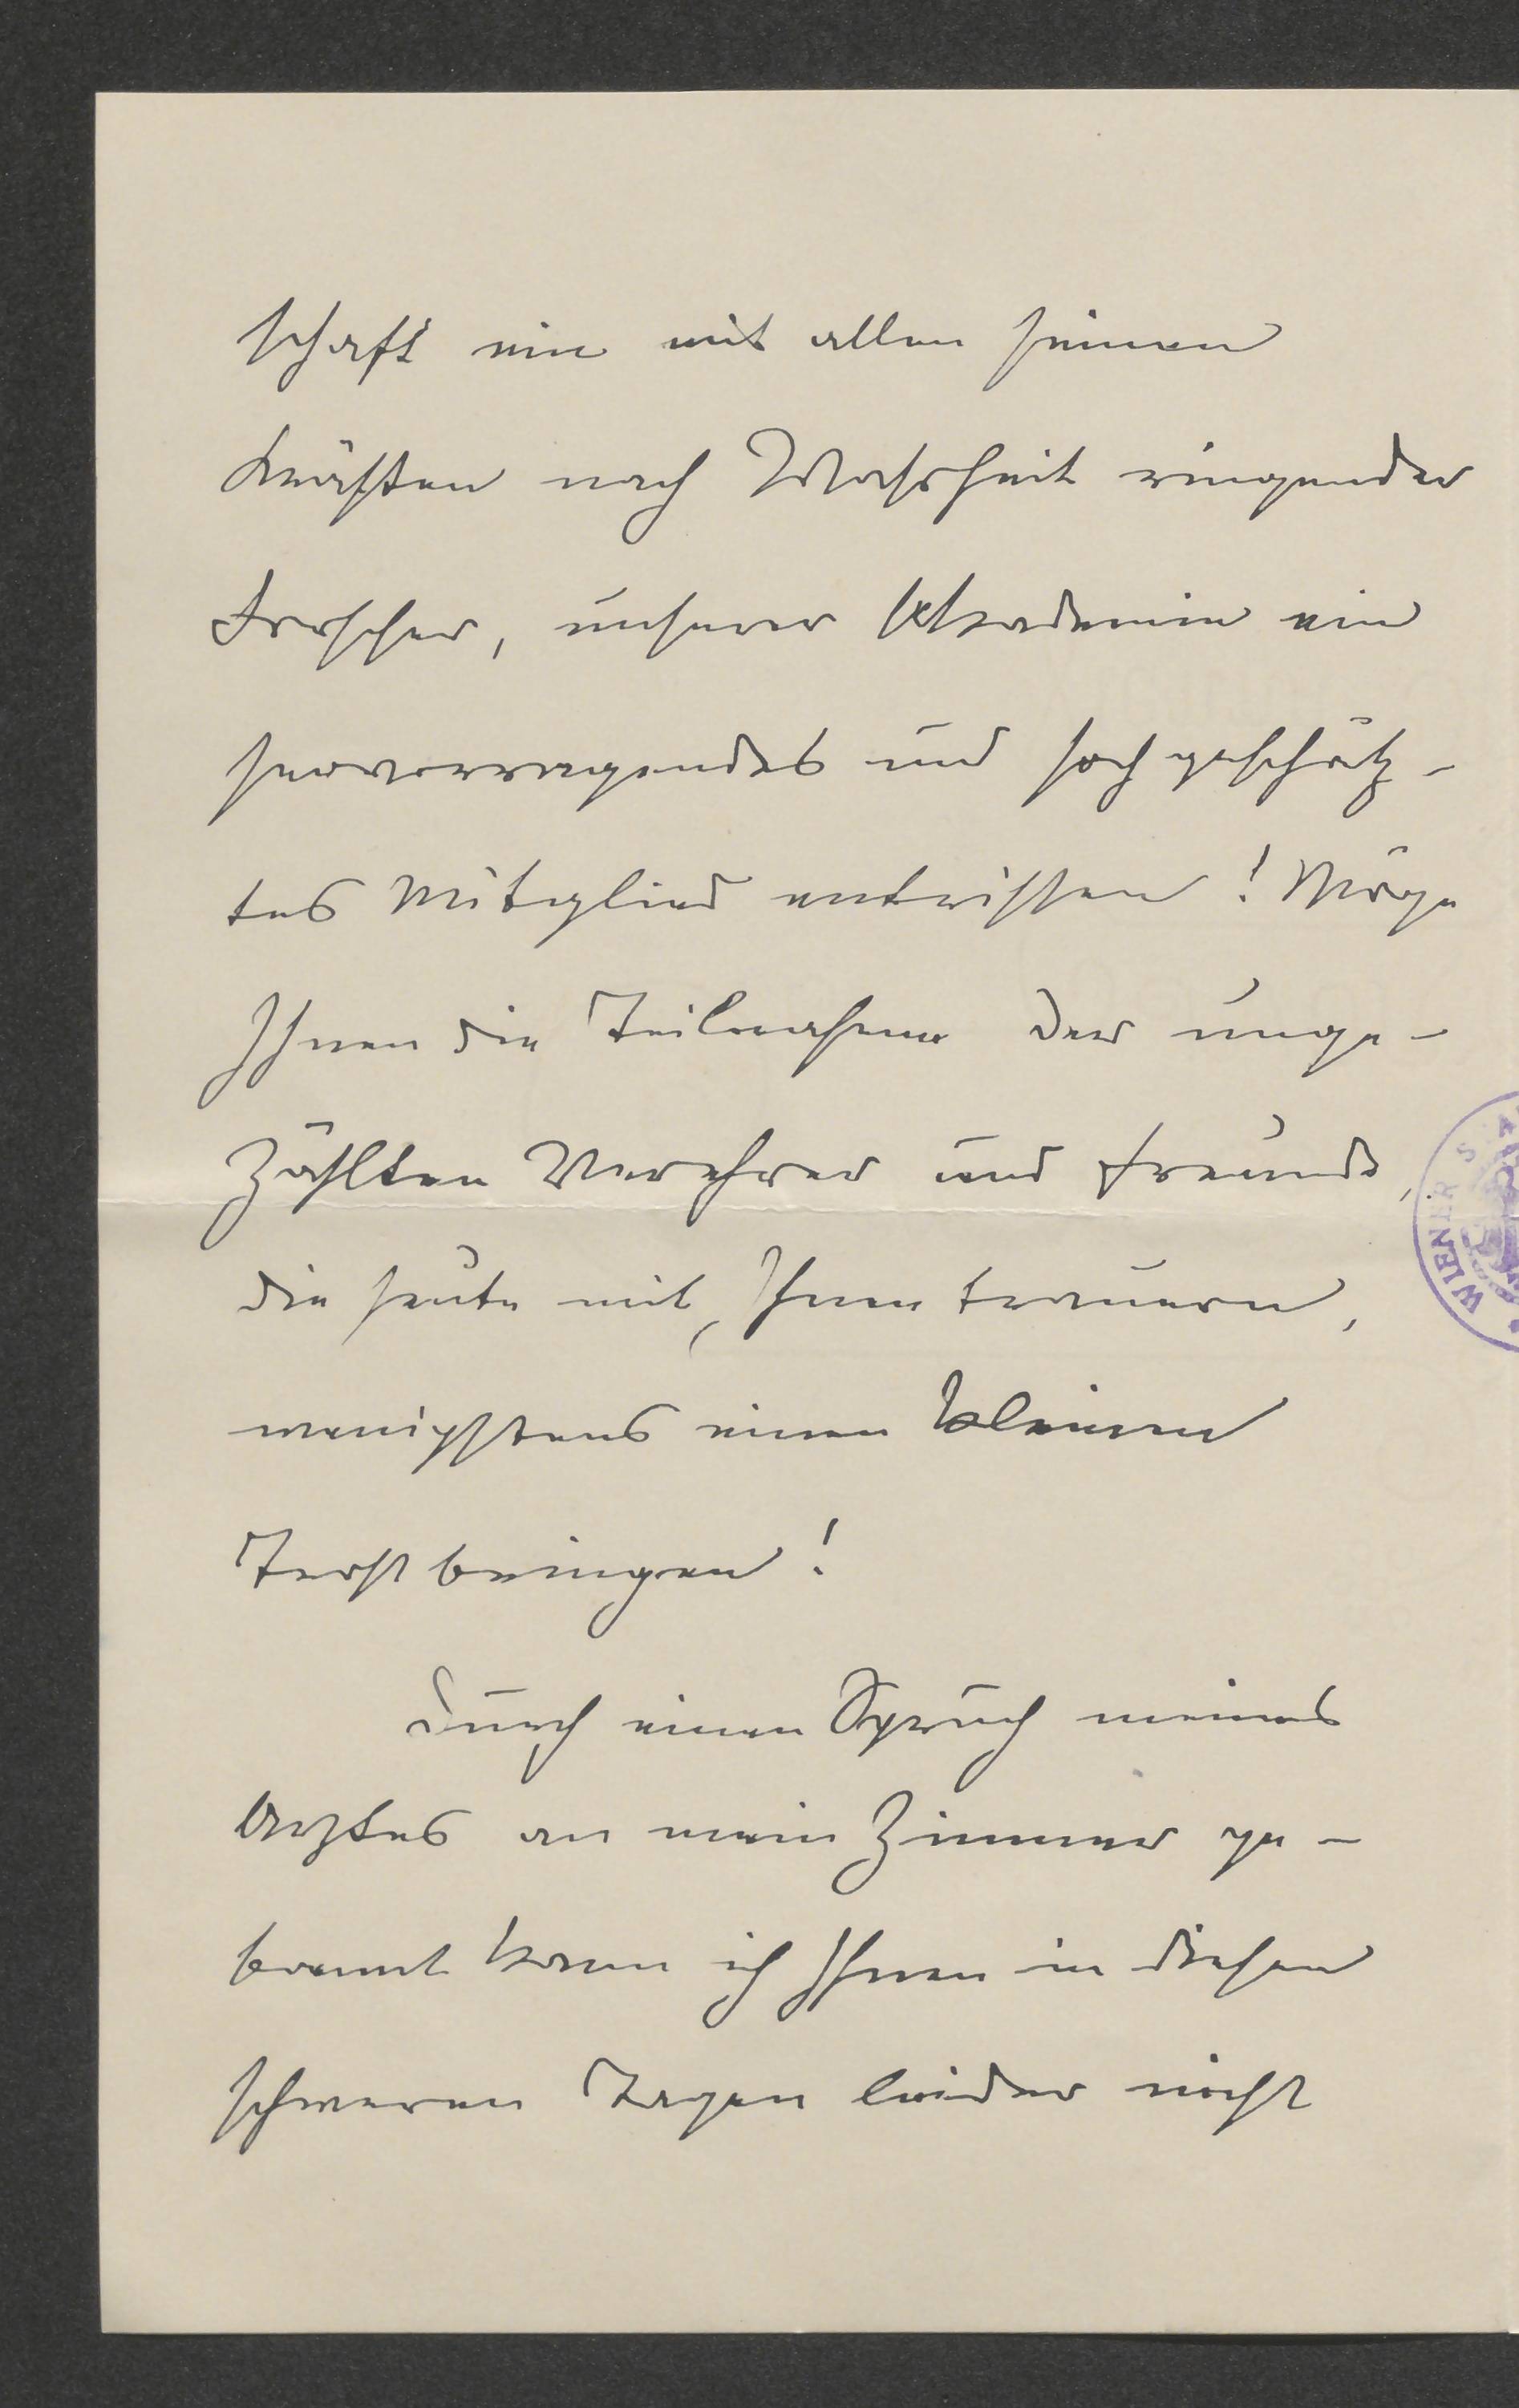 schaft ein mit allen seinen
Kräften nach Wahrheit ringender
Forscher, unserer Akademie ein
hervorragendes und hochgeschätz-
tes Mitglied entrissen! Möge
Ihnen die Teilnahme der unge-
zählten Verehrer und Freunde,
die heute mit Ihnen trauern,
wenigstens einen kleinen
Trost bringen!
Durch einen Spruch meines
Arztes an mein Zimmer ge-
bannt kann ich Ihnen in diesen
schweren Tagen leider nicht
WIENER S